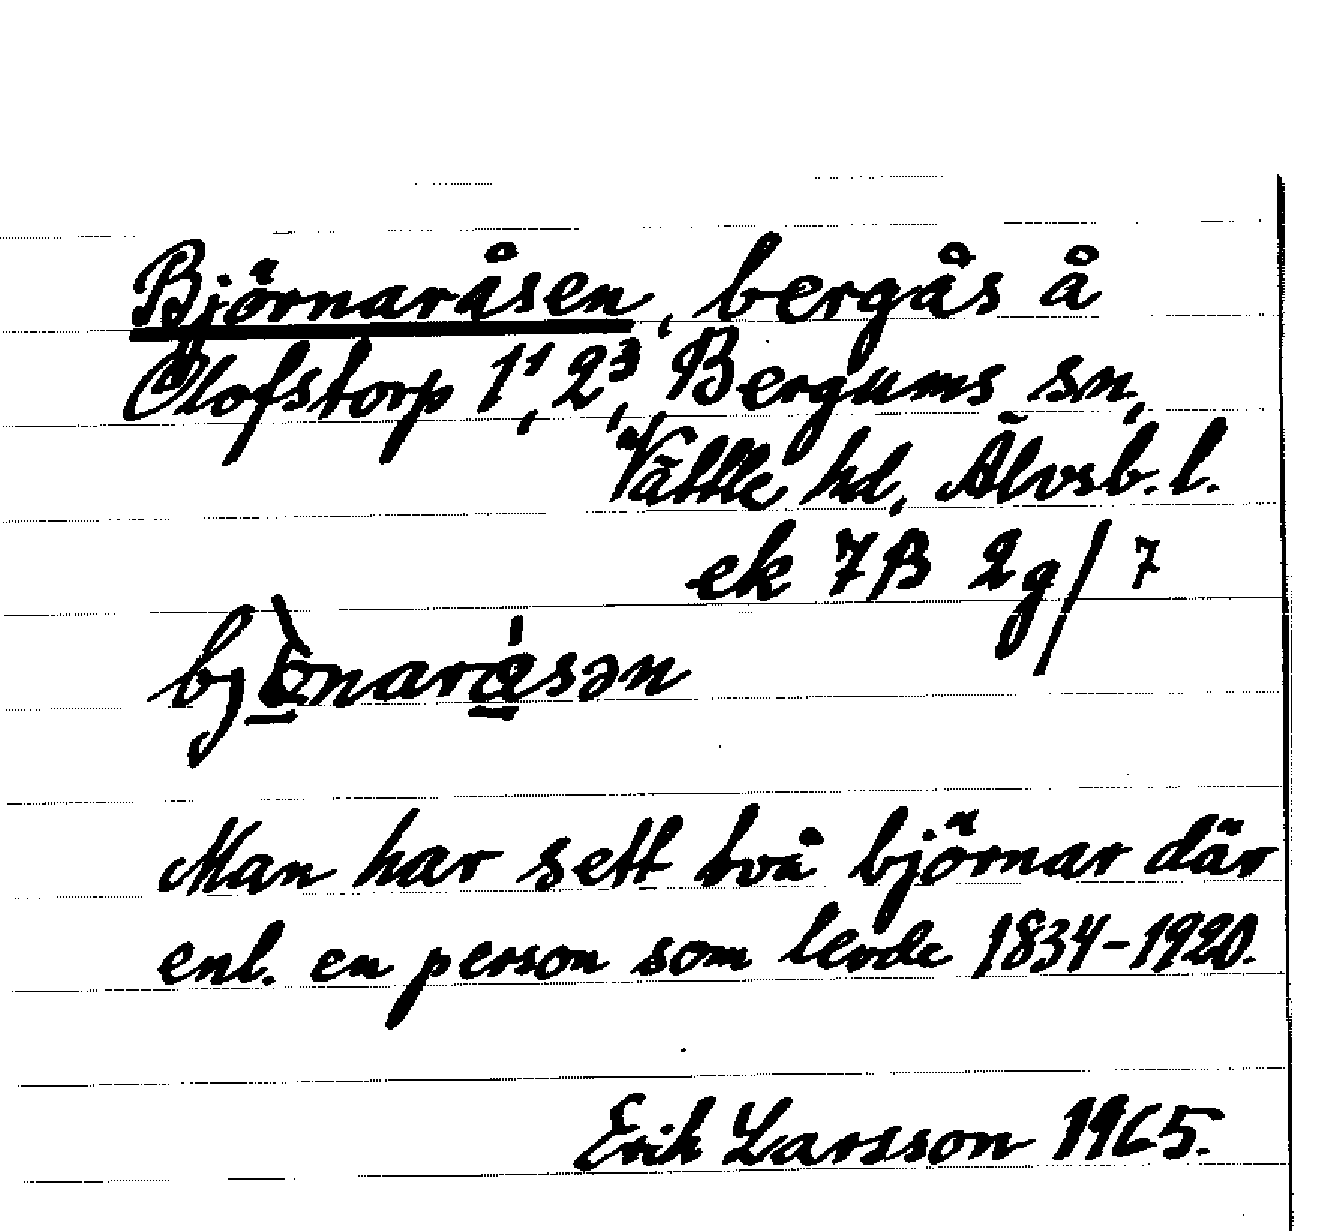 Björnaråsen, bergås å
Olofstorp 1¹, 2³, Bergums sn,
Vättle hd, Älvsb. l.
ek 7B 2g/7
Man har sett två björnar där
enl. en person som levde 1834-1920.
Erik Larsson 1965.